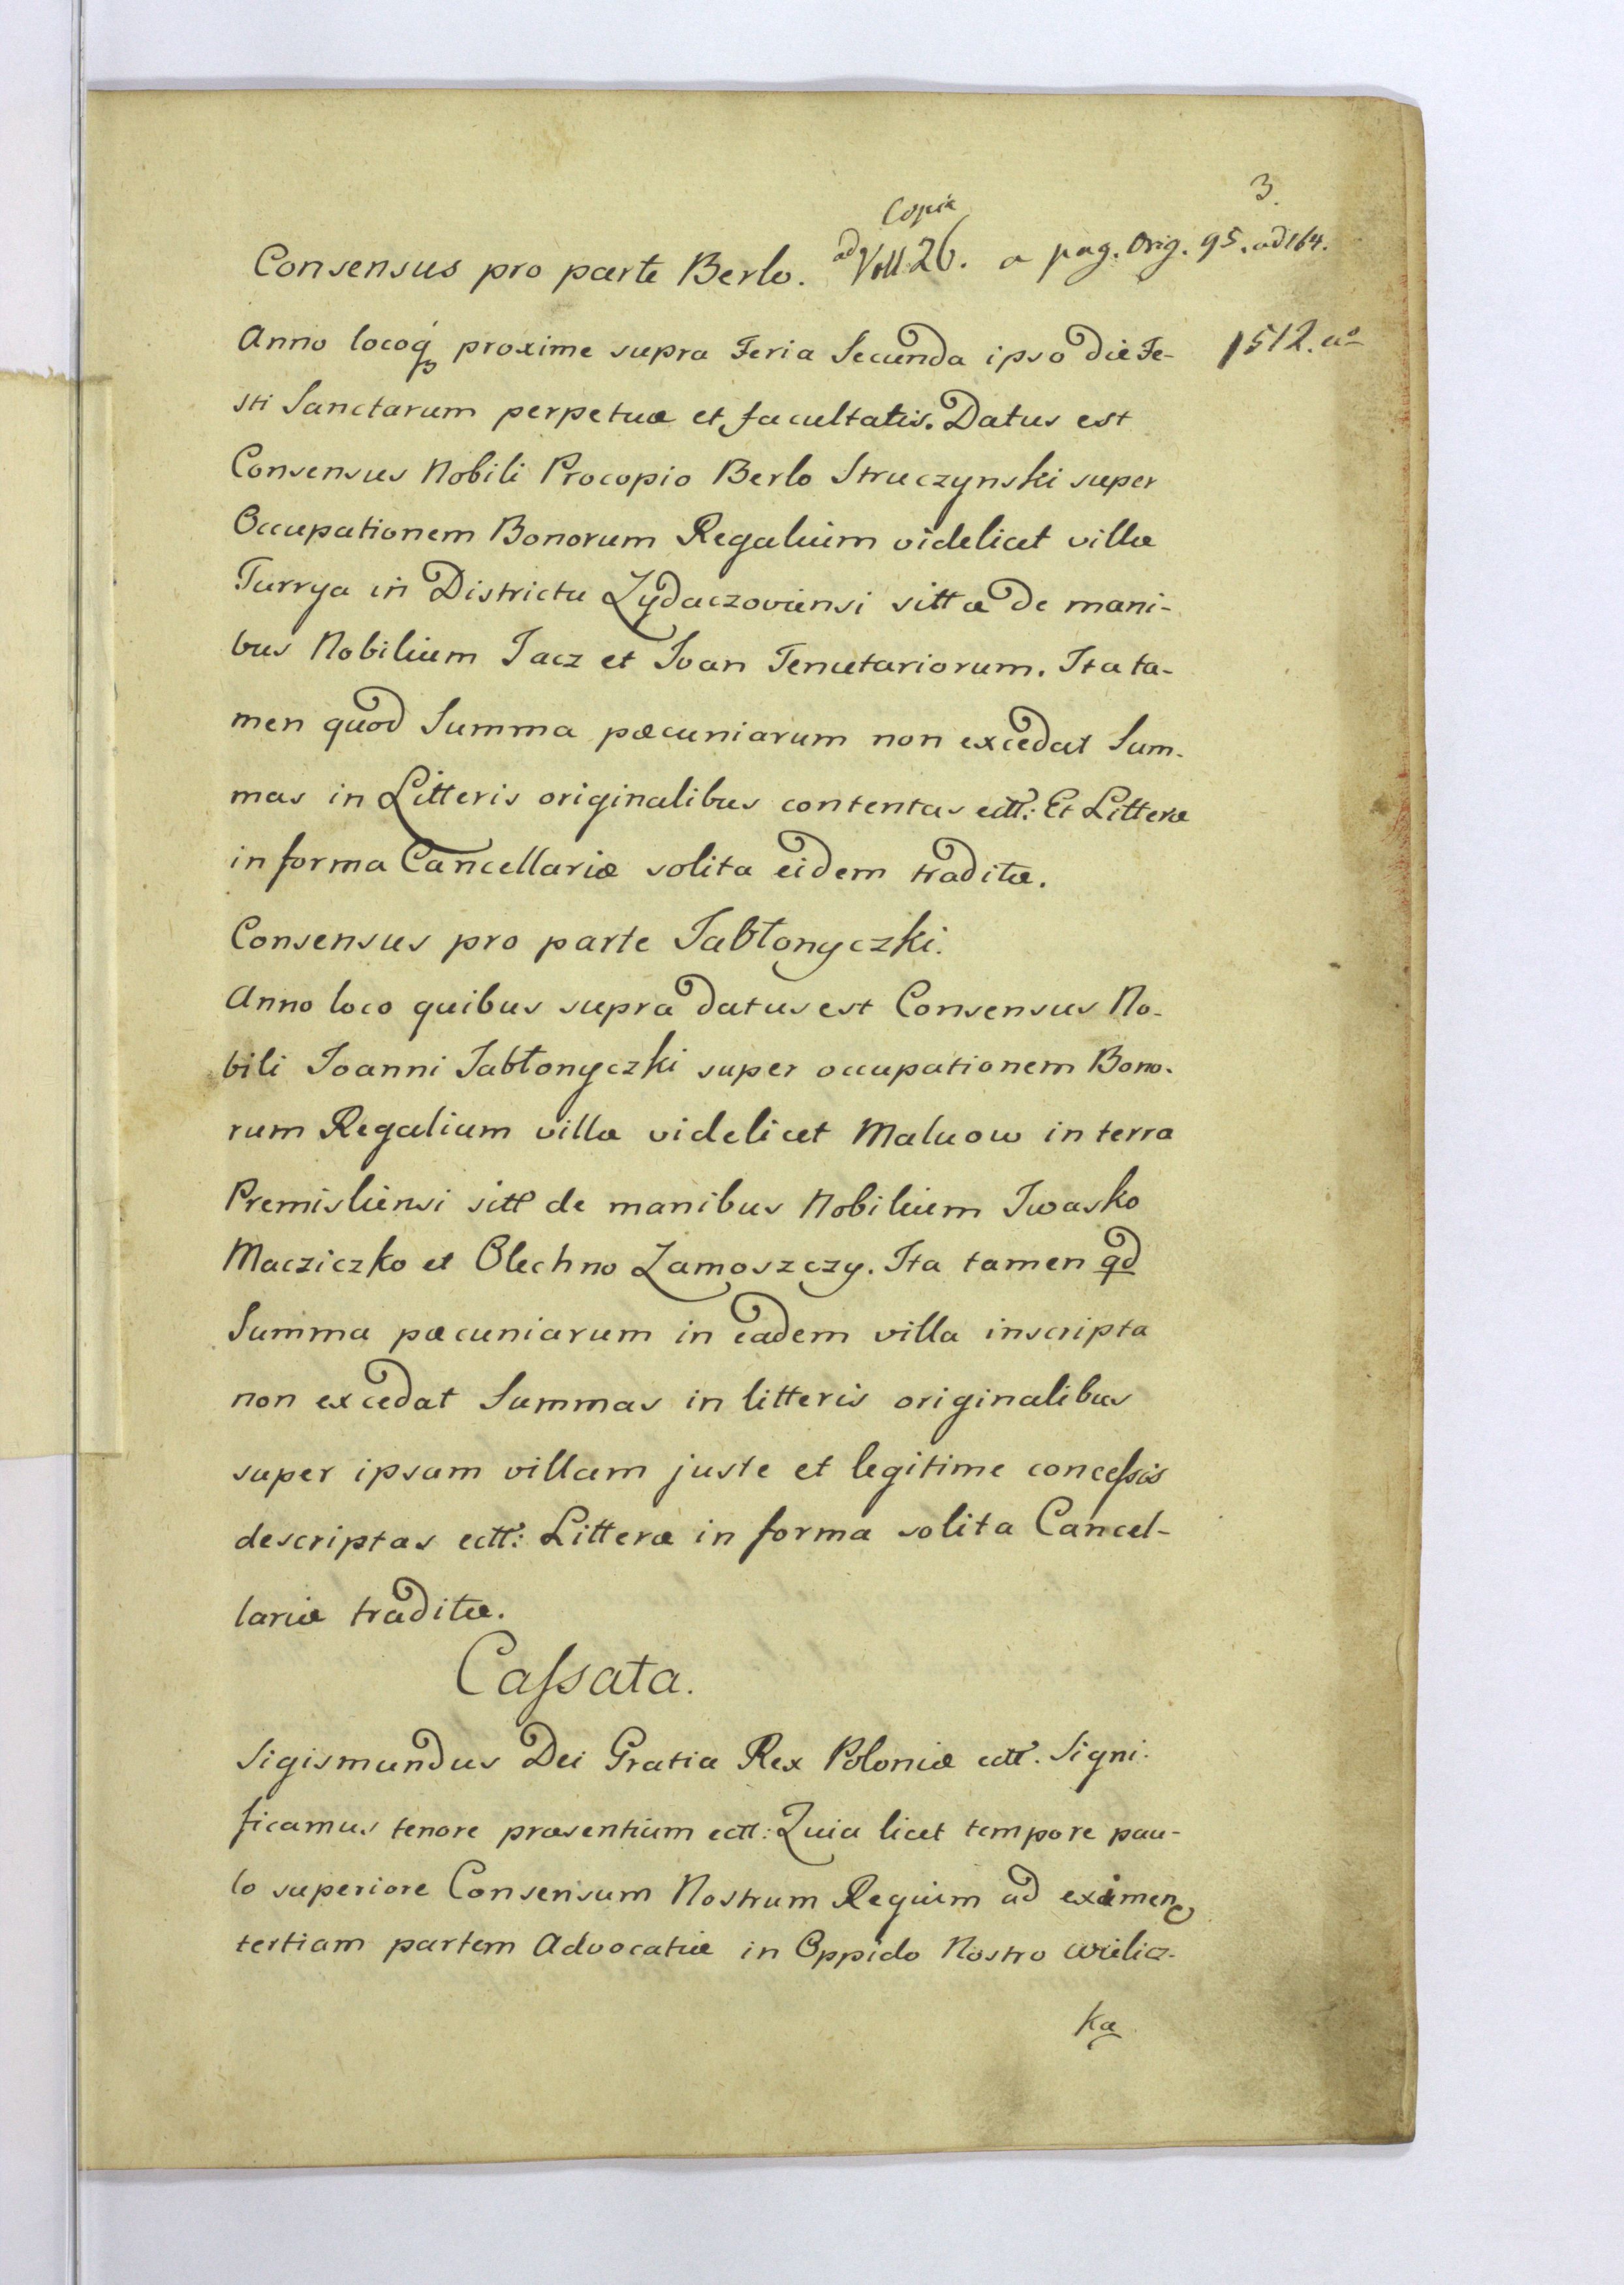 3.
Copia
Consensus pro parte Berlo. ad Voll: 26. a pag. Orig. 95. ad 164.
Anno locoq́ꝫ proxime supra Feria Secunda ipso die Fe- 1512. aº
sti Sanctarum perpetuæ et facultatis. Datus est
Consensus Nobili Procopio Berlo Struczynski super
Occupationem Bonorum Regalium videlicet villæ
Turrya in Districtu Zydaczoviensi sittæ de mani-
bus Nobilium Jacz et Ivan Tenutariorum. Ita ta-
men quod Summa pæcuniarum non excedat Sum-
mas in Litteris originalibus contentas ectt: Et Litteræ
in forma Cancellariæ solita eidem traditæ.
Consensus pro parte Jabłonyczki.
Anno loco quibus supra datus est Consensus No-
bili Joanni Jabłonyczki super occupationem Bono-
rum Regalium villæ videlicet Maluow in terra
Premisliensi sitt de manibus Nobilium Iwasko
Macziczko et Olechno Zamoszczy. Ita tamen qd
Summa pæcuniarum in eadem villa inscripta
non excedat Summas in litteris originalibus
super ipsam villam juste et legitime conceſsis
descriptas ectt: Litteræ in forma solita Cancel-
lariæ traditæ.
Caſsata.
Sigismundus Dei Gratia Rex Poloniæ ectt. Signi-
ficamus tenore præsentium ectt: Quia licet tempore pau-
lo superiore Consensum Nostrum Regium ad eximen
tertiam partem Advocatiæ in Oppido Nostro Wielicz-
ka